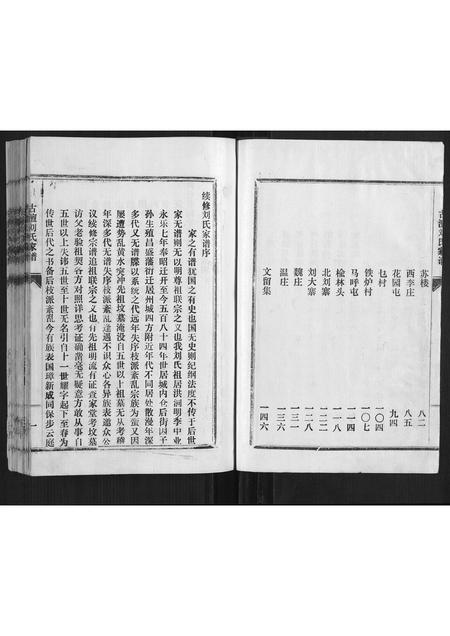 古澶刘氏家谱
苏楼 八二
西李庄 八五
花园屯 九四
乜村 一〇四
铁炉村 一〇七
马呼屯 一一四
榆林头 一一八
北刘寨 一二二
刘大寨 一二八
魏庄 一三三
温庄 一三六
文留集 一四六
续修刘氏家谱序
家之有谱犹国之有史也国无史则纪纲法度不传于后世
家无谱则无以明尊祖联宗之义也我刘氏祖居洪洞明季中业
永乐七年奉昭迁开至今五百八十四年世居城内仓后街因子
孙生殖昌盛藩衍迁居州城四方附近年代不同居处散漫年深
多代又无谱牒以系统之代远年失序枝派紊乱宗族为蛮又因
屡遭势乱黄水突冲先祖坟墓淹没自五世以上祖墓无从考稽
年深多代无谱失序枝派紊乱遂遇不识众心各异族表遗众公
议续修宗谱追祖联宗之义也有先祖明流有证查家堂考坟墓
访父老验祖契各方对照详思考证确凿毫无疑意方敢从事自
五世以上失讳五世至十世无名引自十一世耀字起下至春为
传世后代之书备后枝派紊乱今有族表国璋新成同保步云庭
古澶刘氏家谱
一